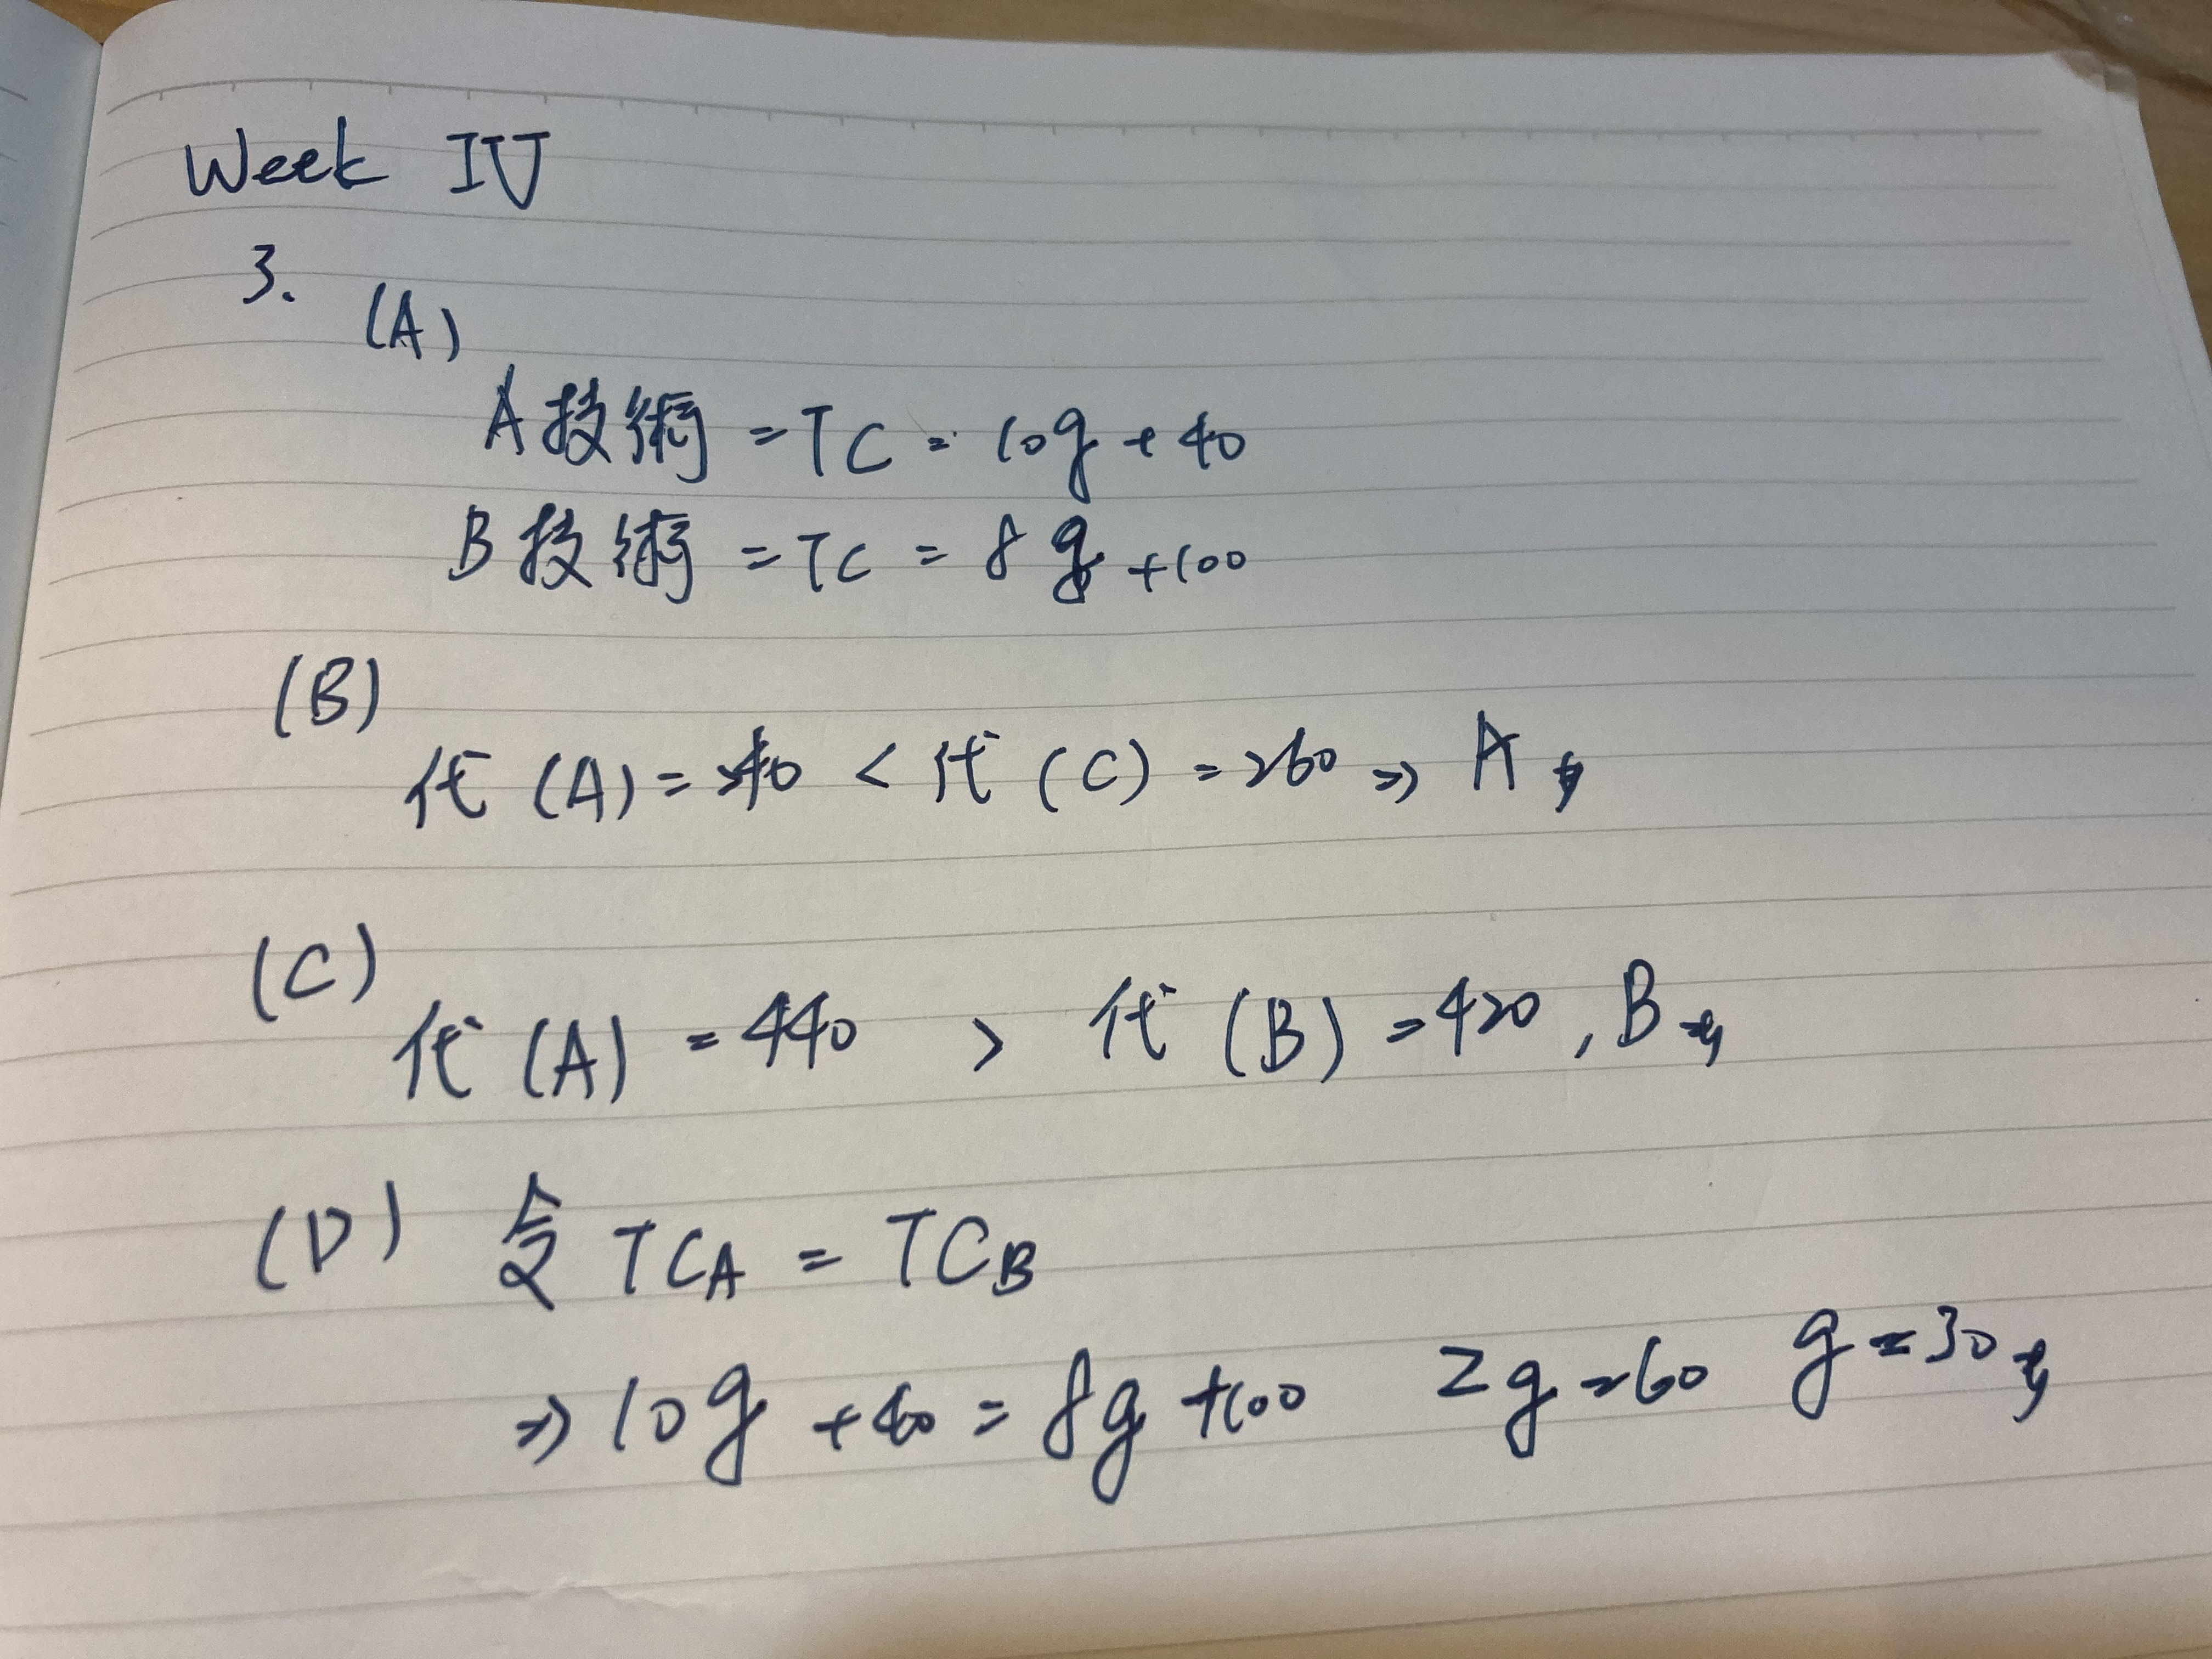 Week IV
3.
(A)
A技術 = TC = 10q + 40
B技術 = TC = 8q + 100
(B)
代 (A) = 240 < 代 (C) = 260 => A
(C)
代 (A) = 440 > 代 (B) = 420, B
(D) 令 TCA = TCB
=> 10q + 40 = 8q + 100 2q = 60 q = 30